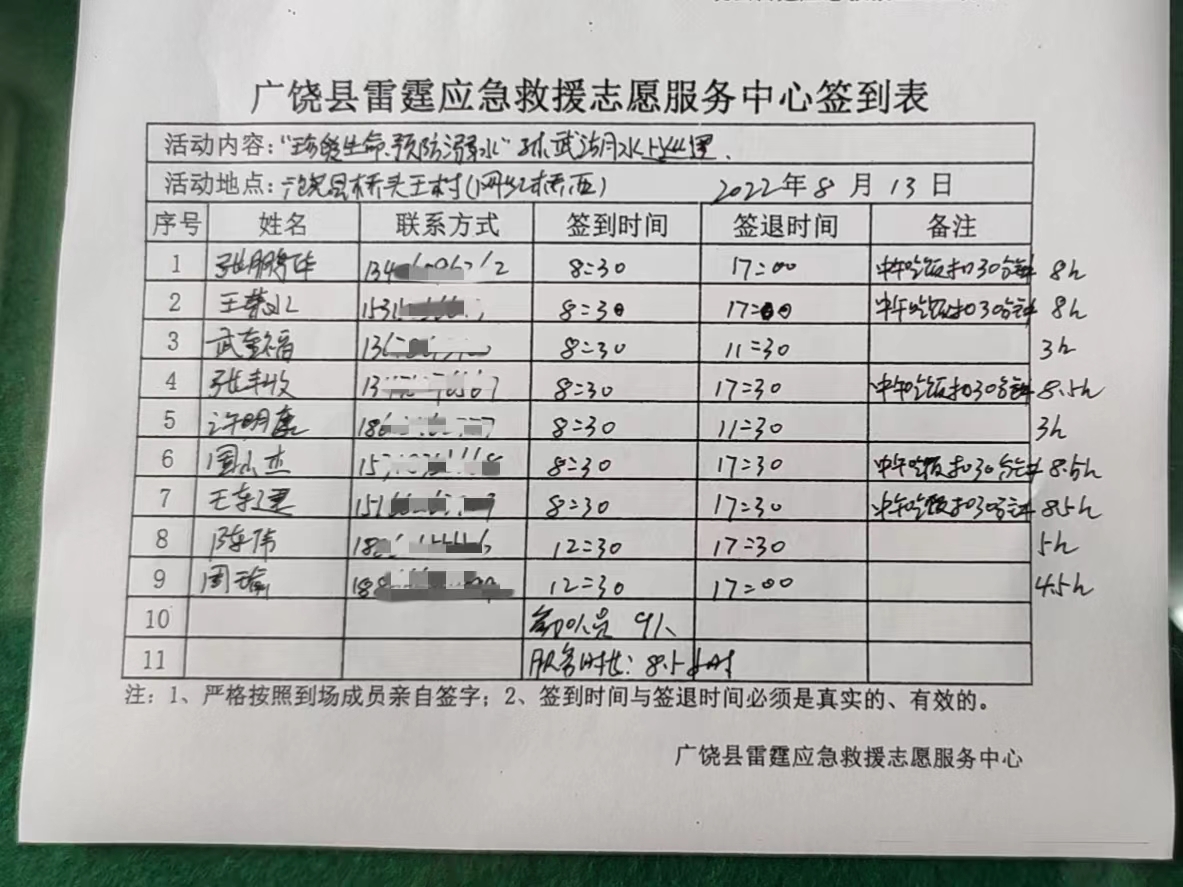 广饶县雷霆应急救援志愿服务中心签到表
活动内容：“珍爱生命.预防溺水”孙武湖水上巡逻.
活动地点： 桥头王村（网红桥西） 2022年8月13日
序号 姓名 联系方式 签到时间 签退时间 备注
1 张鹏华 134 2 8:30 17:00 中午吃饭扣30分钟 8h
2 王 153 8:30 17:00 中午吃饭扣30分钟 8h
3 武奎福 136 8:30 11:30 3h
4 张丰收 13 8:30 17:30 中午吃饭扣30分钟 8.5h
5 许明 186 8:30 11:30 3h
6 周小杰 15 8:30 17:30 中午吃饭扣30分钟 8.5h
7 王东建 15 8:30 17:30 中午吃饭扣30分钟 8.5h
8 陈伟 18 12:30 17:30 5h
9 周瑜 188 12:30 17:00 4.5h
10 参加人员 9人
11 服务时长：8.5小时
注：1、严格按照到场成员亲自签字；2、签到时间与签退时间必须是真实的、有效的。
广饶县雷霆应急救援志愿服务中心